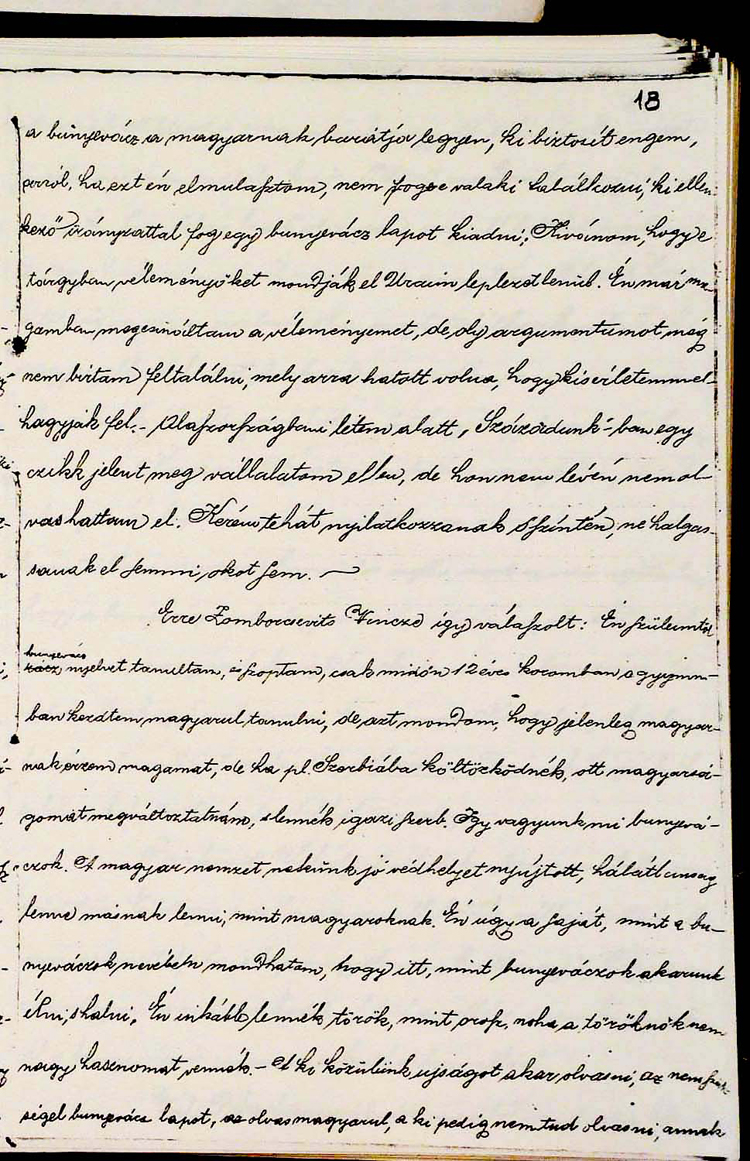 18
a bunyevácz a magyarnak barátja legyen, ki biztosít engem,
arról, ha ezt én elmulasztom, nem fog-e valaki találkozni, ki ellen-
kező irányzattal fog egy bunyevácz lapot kiadni; Kivánom, hogy e
tárgyban véleményöket mondják el Uraim leplezetlenül. Én már ma-
gamban megcsináltam a véleményemet, de oly argumentumot még
nem birtam feltalálni, mely arra hatott volna, hogy kisérletemmel
hagyjak fel. - Olaszországbani létem alatt, „Századunk"-ban egy
czikk jelent meg vállalatom ellen, de hon nem lévén nem ol-
vashattam el. Kérem tehát nyilatkozzanak őszintén, ne halgas-
sanak el semmi okot sem.
Erre Zomborcsevits Vincze így válaszolt: Én szüleimtől
bunyevácz
rácz nyelvet tanultam, s szoptam, csak midőn 12 éves koromban a gymn-
ban kezdtem magyarul tanulni, de azt mondom, hogy jelenleg magyar-
nak érzem magamat, de ha pl. Szerbiába költözködnék, ott magyarsá-
gomat megváltoztatnám, s lennék igazi szerb. Így vagyunk mi bunyevá-
czok. A magyar nemzet nekünk jó védhelyet nyújtott, hálátlanság
lenne másnak lenni, mint magyaroknak. Én úgy a saját, mint a bu-
nyeváczok nevében mondhatom, hogy itt, mint bunyeváczok akarunk
élni, s halni. Én inkább lennék török, mint orosz, noha a töröknök nem
nagy hasznomat vennék. - A ki közülünk ujságot akar olvasni, az nem szük-
ségel bunyevácz lapot, az olvas magyarul, a ki pedig nem tud olvasni, annak